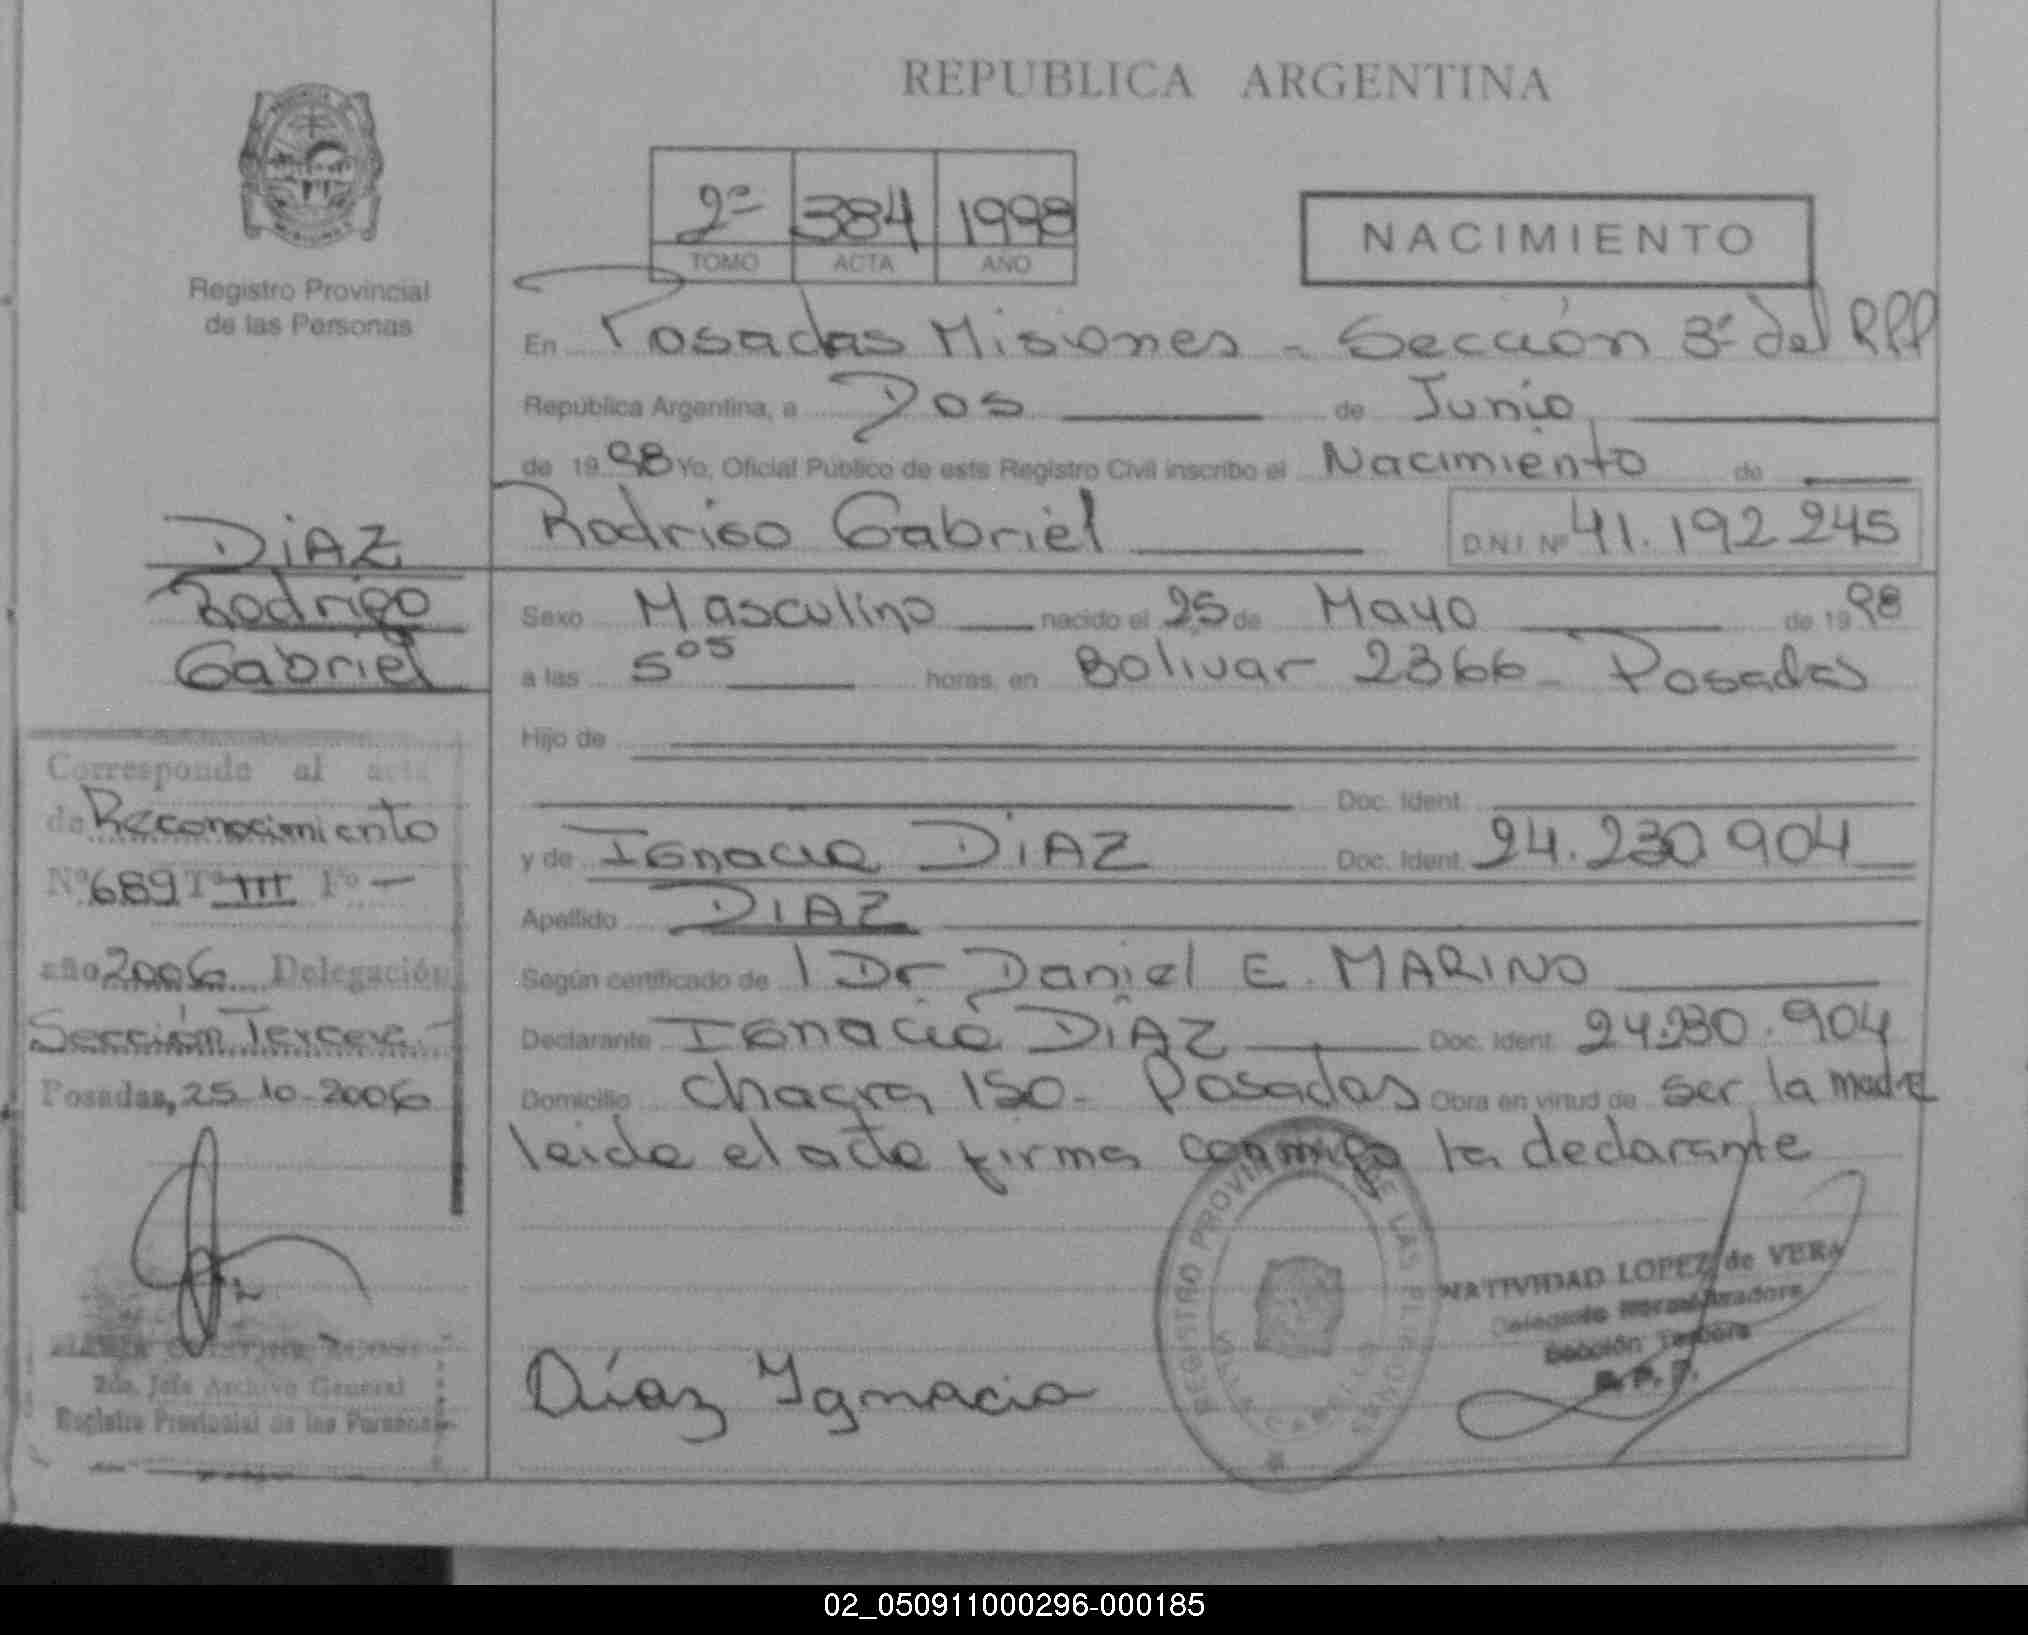 REPUBLICA ARGENTINA
2º 384 1998
TOMO ACTA AÑO
NACIMIENTO
Registro Provincial
de las Personas
En Posadas Misiones - Sección 3ª del RPP
República Argentina, a Dos de Junio
de 1998 Yo, Oficial Público de este Registro Civil inscribo el Nacimiento de
Rodrigo Gabriel D.N.I. Nº 41.192 245
DIAZ
Rodrigo
Gabriel
Sexo Masculino nacido el 25 de Mayo de 1998
a las 5 05 horas, en Bolivar 2366 - Posadas
Hijo de
Doc. Ident.
y de Ignacia DIAZ Doc. Ident. 24.230 904
Apellido DIAZ
Según certificado de l Dr Daniel E. MARINO
Declarante Ignacia DIAZ Doc. Ident. 24.230.904
Domicilio Chacra 150 - Posadas Obra en virtud de ser la madre
leida el acta firma conmigo la declarante
Corresponde al acta
de Reconocimiento
Nº 689 Tº III Fº -
año 2006 Delegación
Sección Tercera
Posadas, 25-10-2006
2do. Jefe Archivo General
Registro Provincial de las Personas
Díaz Ignacia
REGISTRO PROVINCIAL DE LAS PERSONAS
NATIVIDAD LOPEZ de VERA
Sección Tercera
R. P. P.
02_050911000296-000185